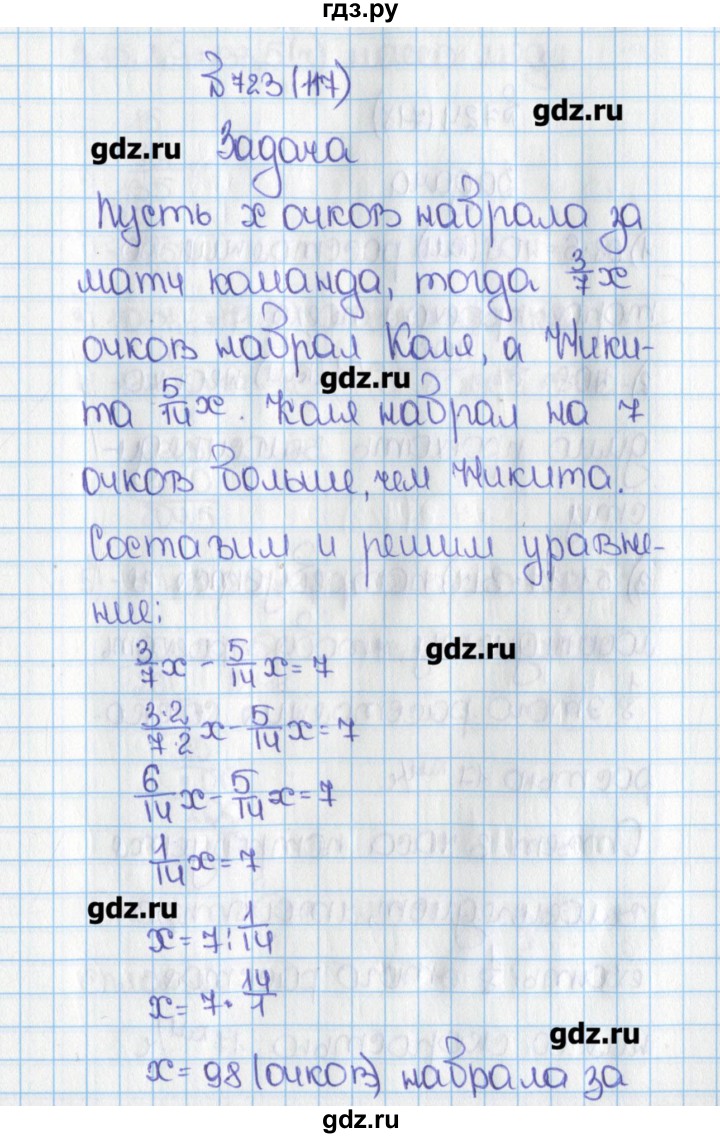 гдз.ру
№723(117)
gdz.ru
gdz.ru Задача
Пусть x очков набрала за
матч команда, тогда 3/7 x
очков набрал Коля, а Ники-
gdz.ru
та 5/14 x. Коля набрал на 7
очков больше, чем Никита.
Составим и решим уравне-
ние:
gdz.ru
3/7 x - 5/14 x = 7
3·2/7·2 x - 5/14 x = 7
6/14 x - 5/14 x = 7
1/14 x = 7
gdz.ru
x = 7 : 1/14
x = 7 · 14/1
gdz.ru
x = 98 (очков) набрала за
gdz.ru